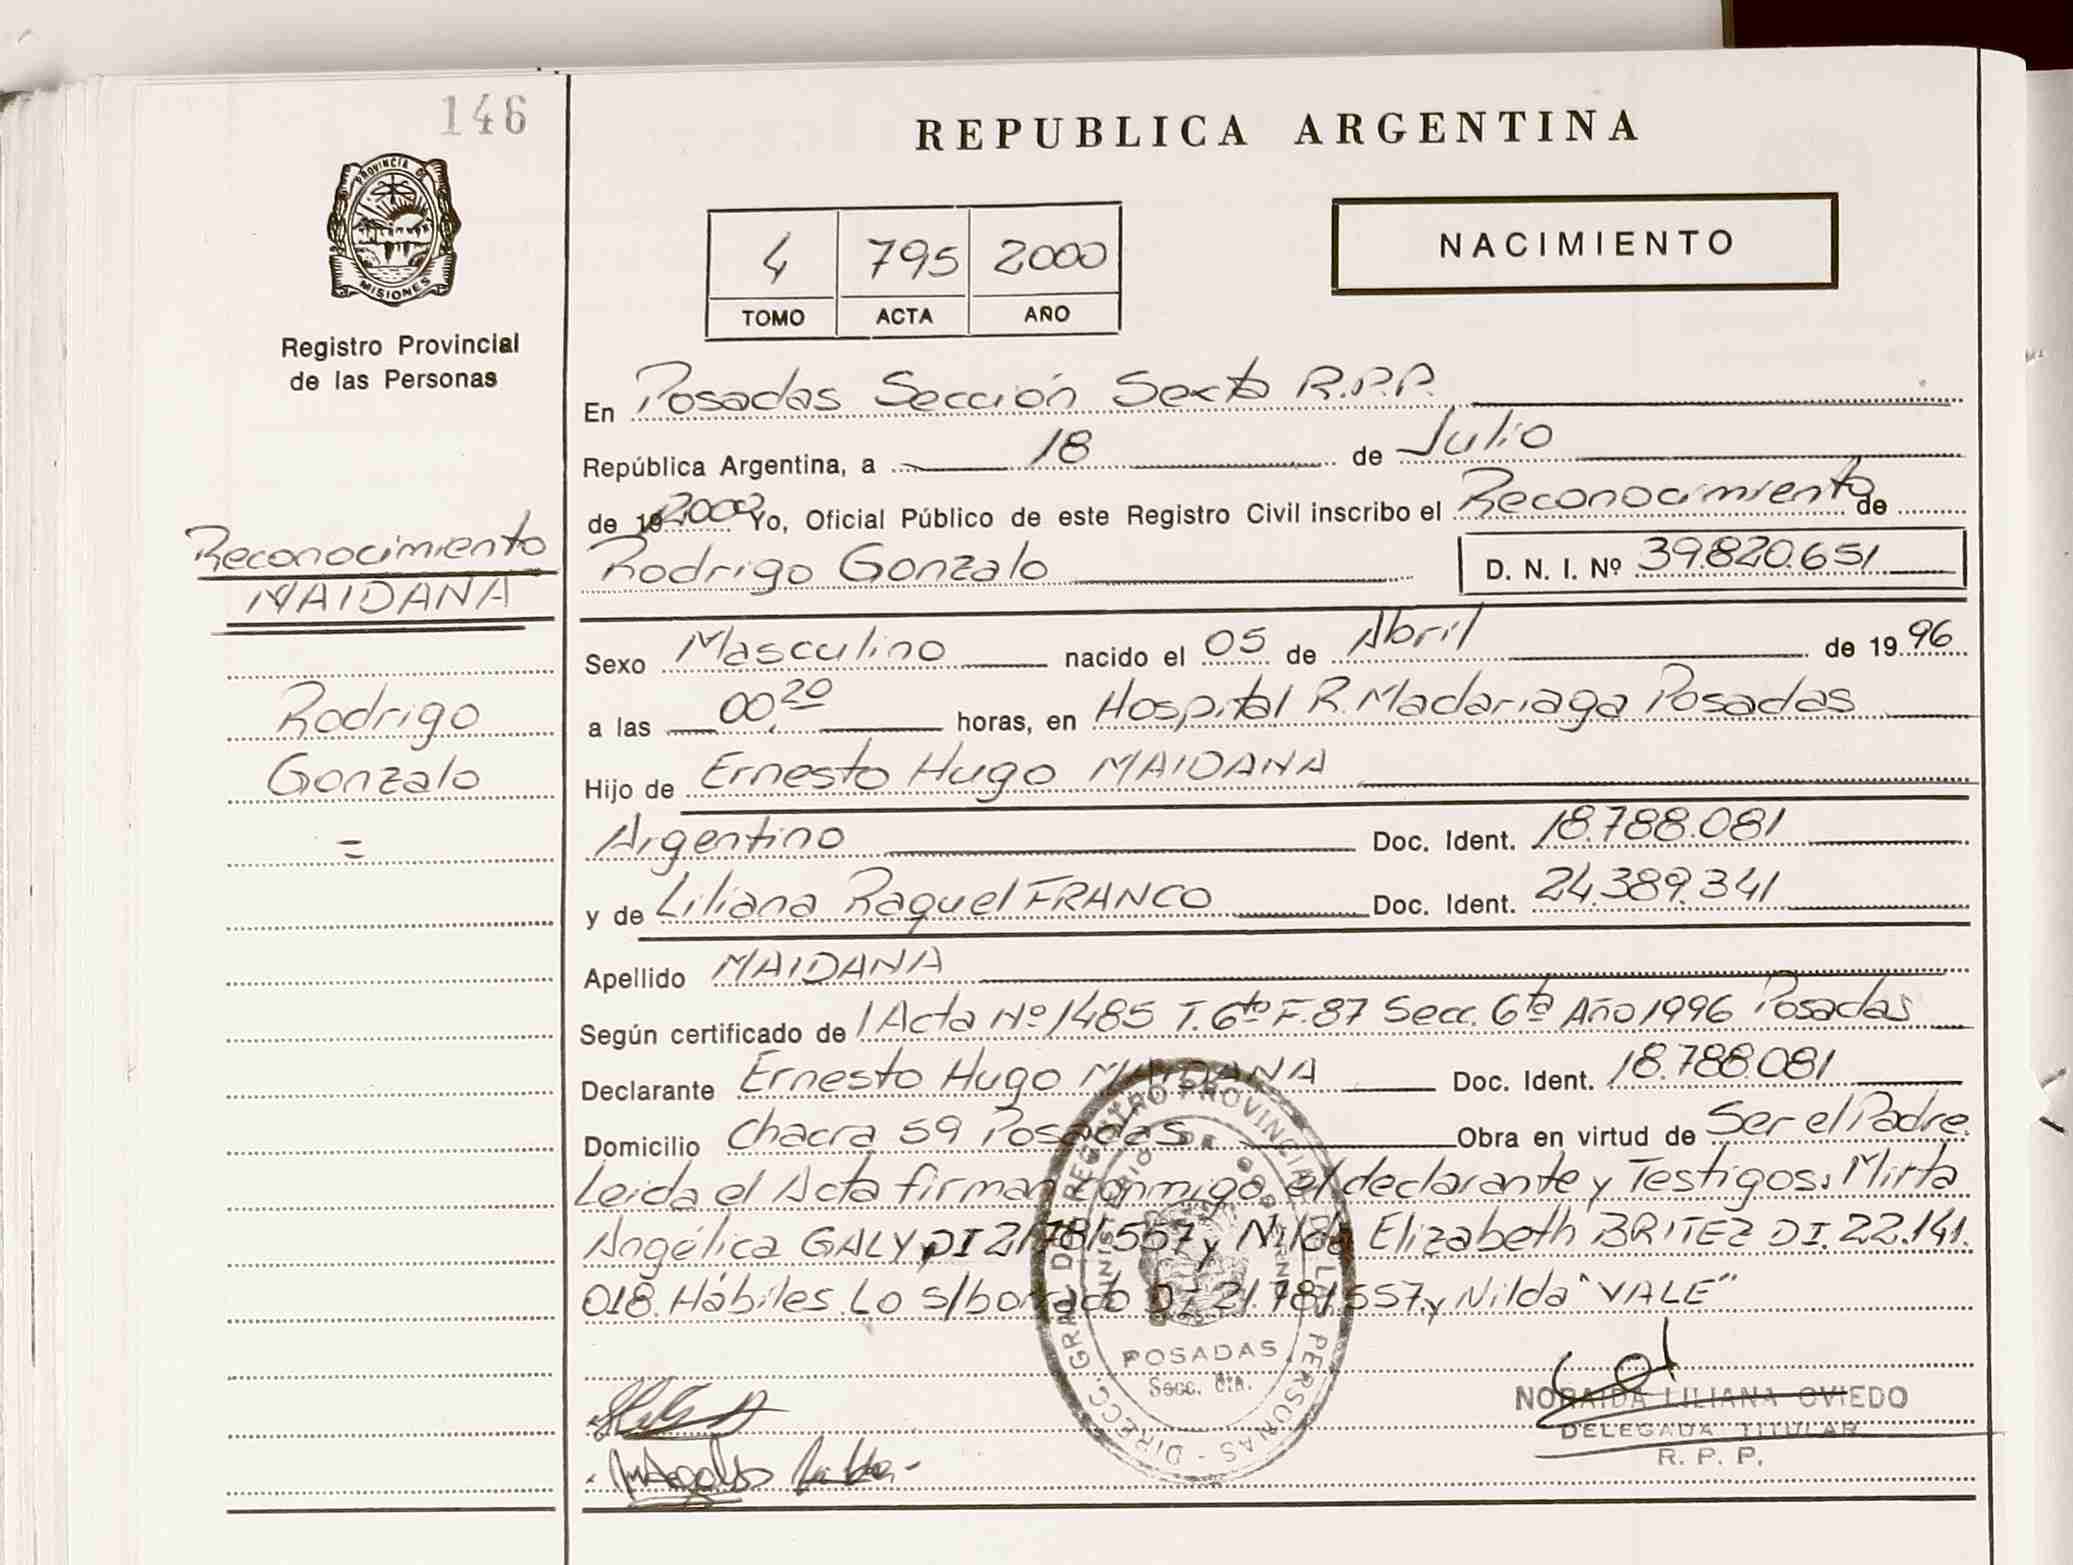 146
PROVINCIA DE
MISIONES
Registro Provincial
de las Personas
Reconocimiento
MAIDANA
Rodrigo
Gonzalo
=
REPUBLICA ARGENTINA
4 795 2000
TOMO ACTA AÑO
NACIMIENTO
En Posadas Sección Sexta R.P.P.
República Argentina, a 18 de Julio
de 19 2000 Yo, Oficial Público de este Registro Civil inscribo el Reconocimiento de
Rodrigo Gonzalo D. N. I. Nº 39.820.651
Sexo Masculino nacido el 05 de Abril de 19 96
a las 00,20 horas, en Hospital R. Madariaga Posadas
Hijo de Ernesto Hugo MAIDANA
Argentino Doc. Ident. 18.788.081
y de Liliana Raquel FRANCO Doc. Ident. 24.389.341
Apellido MAIDANA
Según certificado de l Acta Nº 1485 T. 6to F. 87 Secc. 6ta Año 1996 Posadas
Declarante Ernesto Hugo MAIDANA Doc. Ident. 18.788.081
Domicilio Chacra 59 Posadas Obra en virtud de Ser el Padre.
Leida el Acta firman conmigo el declarante y Testigos: Mirta
Angélica GALY, DI 21781.557 y Nilda Elizabeth BRITEZ DI. 22.141.
018. Hábiles. Lo s/borrado DI 21781557 y Nilda "VALE"
DIRECC. GRAL DEL REGISTRO PROVINCIAL DE LAS PERSONAS
MINISTERIO DE GOBIERNO
POSADAS
Secc. 6ta.
NORAIDA LILIANA OVIEDO
DELEGADA TITULAR
R. P. P.